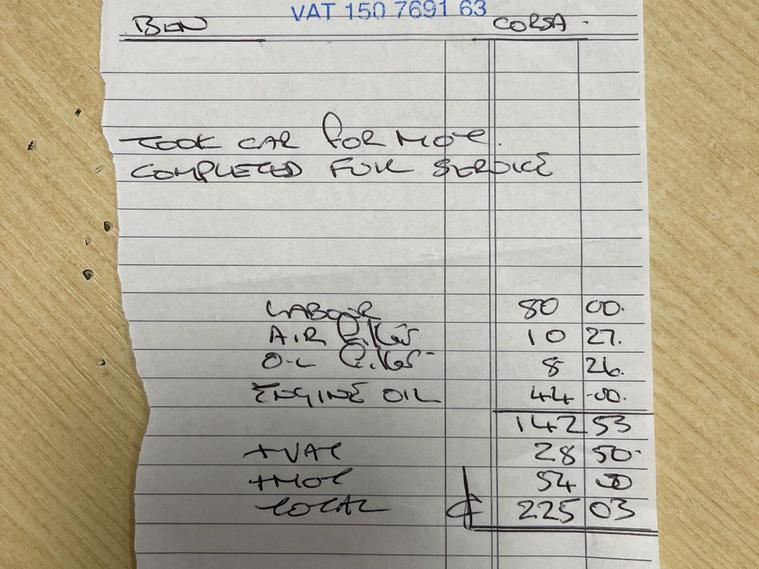 VAT 150 7691 63
BEN CORSA.
TOOK CAR FOR MOT.
COMPLETED FULL SERVICE
LABOUR 80 00.
AIR Filter 10 27.
OIL Filter 8 26.
ENGINE OIL 44 .00.
142 53
+VAT 28 50.
+MOT 54 00
TOTAL £ 225 03